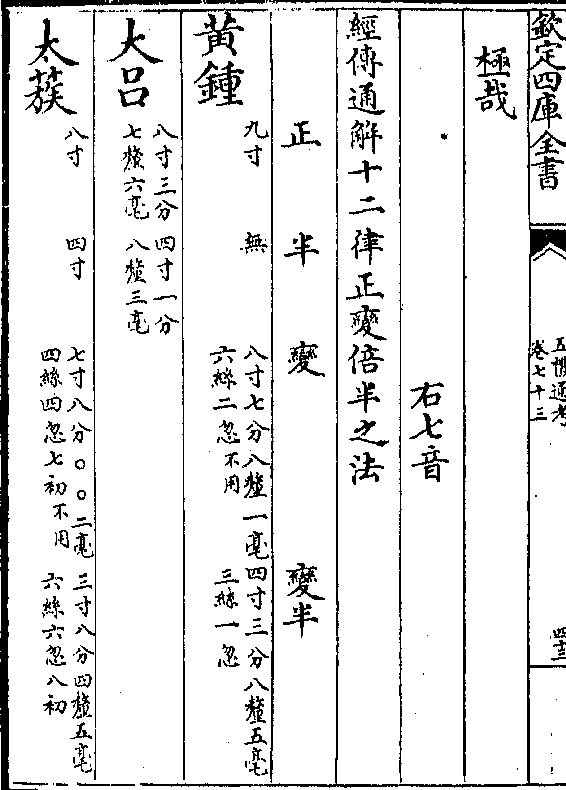 欽定四庫全書
五禮通考
卷七十三
四十三
極哉
右七音
經傳通解十二律正變倍半之法
正 半 變 變半
黃鍾 九寸 無 八寸七分八釐一毫
六絲二忽不用 四寸三分八釐五毫
三絲一忽
大呂 八寸三分
七釐六毫 四寸一分
八釐三毫
太蔟 八寸 四寸 七寸八分〇〇二毫
四絲四忽七初不用 三寸八分四釐五毫
六絲六忽八初